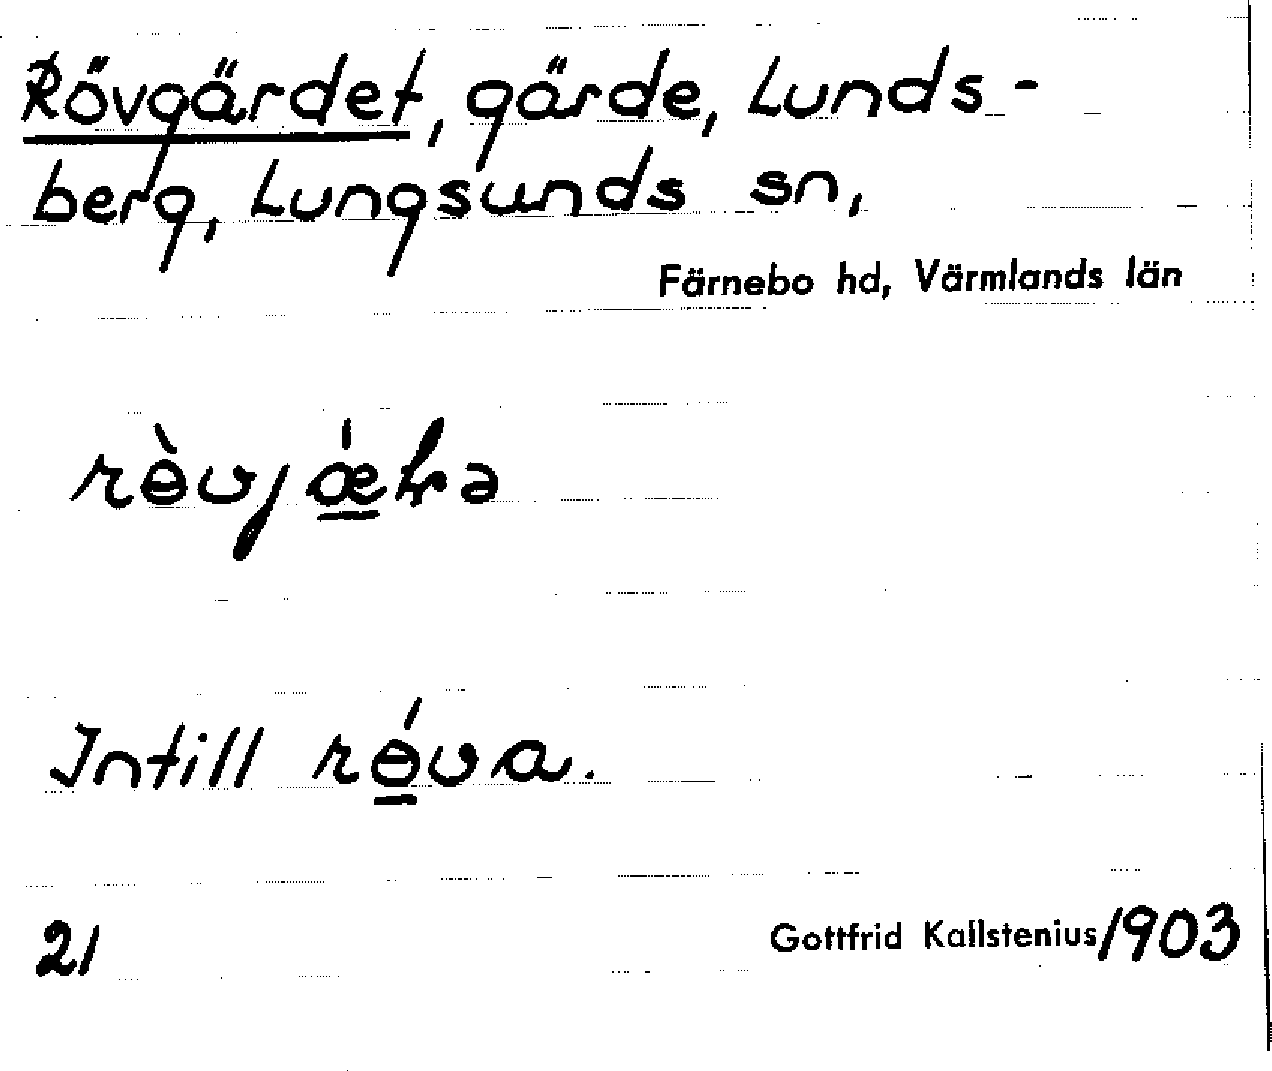 Rövgärdet, gärde, Lunds-
berg, Lungsunds sn,
Färnebo hd, Värmlands län
Intill rɵ́va.
21
Gottfrid Kallstenius/1903